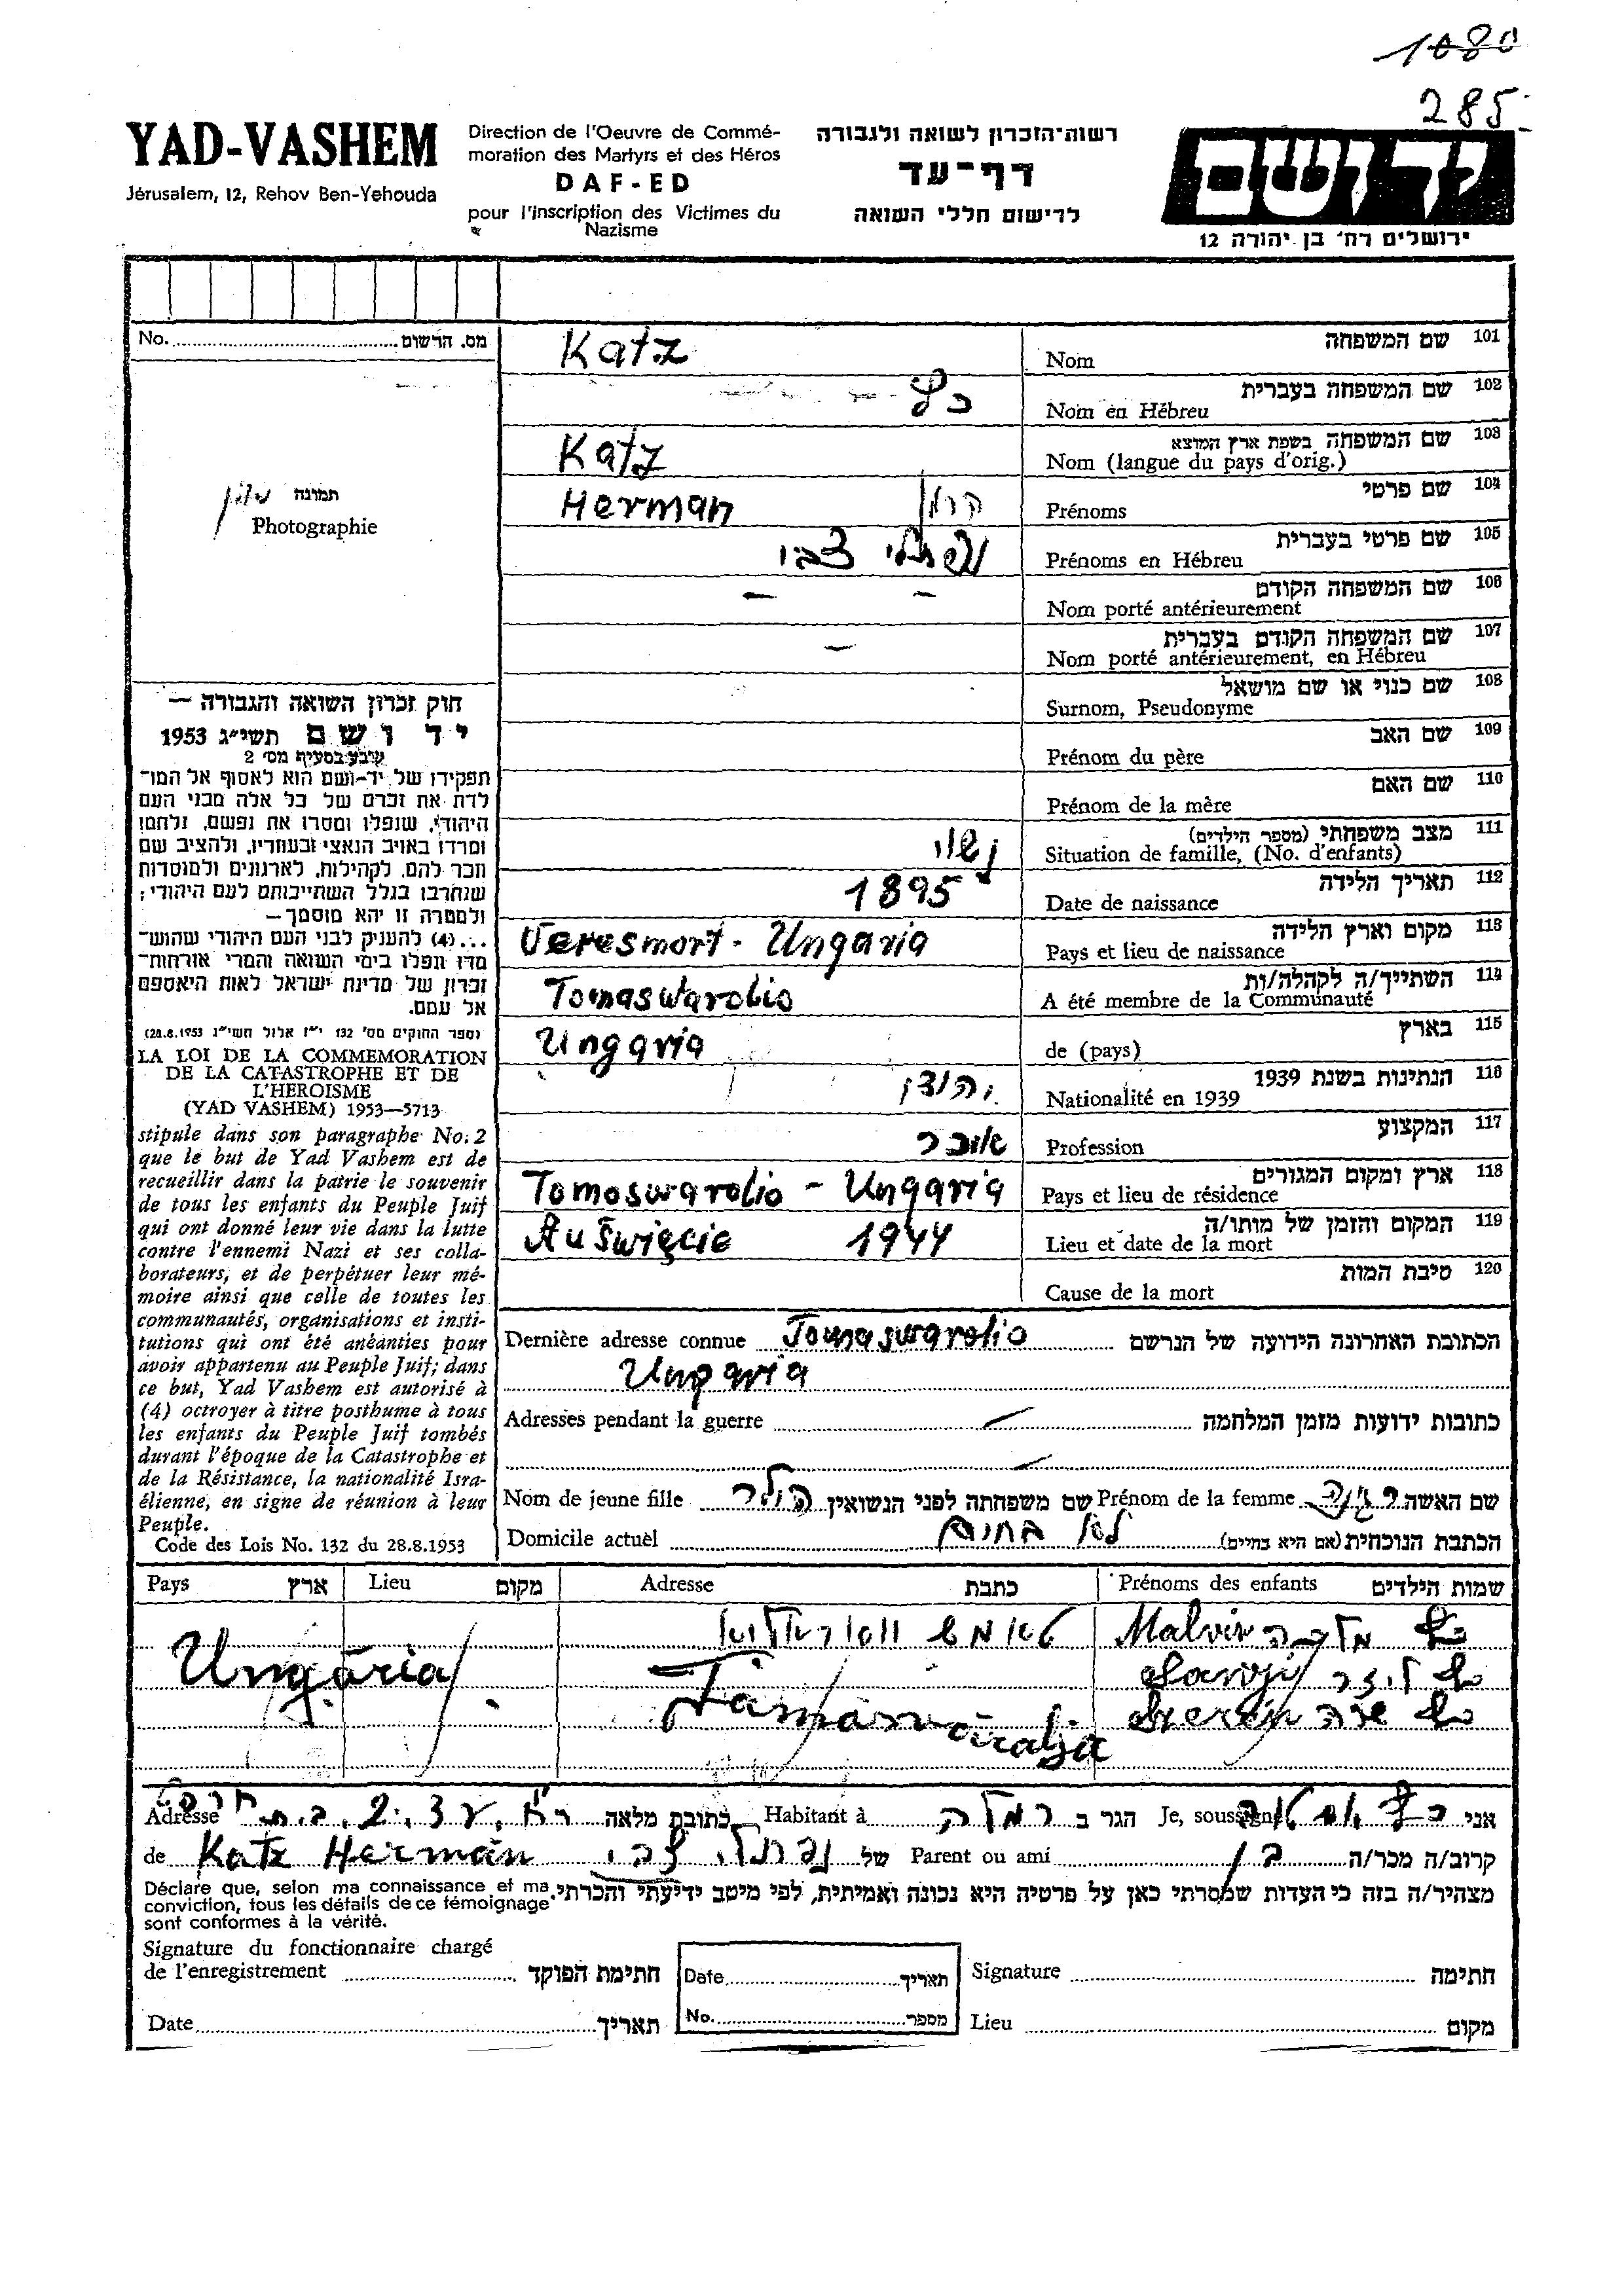 1080
285
YAD-VASHEM
Jérusalem, 12, Rehov Ben-Yehouda
Direction de l'Oeuvre de Commé-
moration des Martyrs et des Héros
DAF-ED
pour l'inscription des Victimes du
Nazisme
רשות־הזכרון לשואה ולגבורה
דף־עד
לרישום חללי השואה
יד ושם
ירושלים רח' בן יהודה 12
No. מס. הרשום
תמונה
Photographie
חוק זכרון השואה והגבורה —
יד ושם תשי״ג 1953
קובע בסעיף מס׳ 2
תפקידו של יד־ושם הוא לאסוף אל המו־
לדת את זכרם של כל אלה מבני העם
היהודי, שנפלו ומסרו את נפשם, נלחמו
ומרדו באויב הנאצי ובעוזריו, ולהציב שם
וזכר להם, לקהילות, לארגונים ולמוסדות
שנחרבו בגלל השתייכותם לעם היהודי;
ולמטרה זו יהא מוסמך—
...(4) להעניק לבני העם היהודי שהוש־
מדו ונפלו בימי השואה והמרי אזרחות־
זכרון של מדינת ישראל לאות היאספם
אל עמם.
(ספר החוקים מס׳ 132 י״ז אלול תשי״ג 28.8.1953)
LA LOI DE LA COMMEMORATION
DE LA CATASTROPHE ET DE
L'HEROISME
(YAD VASHEM) 1953—5713
stipule dans son paragraphe No. 2
que le but de Yad Vashem est de
recueillir dans la patrie le souvenir
de tous les enfants du Peuple Juif
qui ont donné leur vie dans la lutte
contre l'ennemi Nazi et ses colla-
borateurs, et de perpétuer leur mé-
moire ainsi que celle de toutes les
communautés, organisations et insti-
tutions qui ont été anéanties pour
avoir appartenu au Peuple Juif; dans
ce but, Yad Vashem est autorisé à
(4) octroyer à titre posthume à tous
les enfants du Peuple Juif tombés
durant l'époque de la Catastrophe et
de la Résistance, la nationalité Isra-
élienne, en signe de réunion à leur
Peuple.
Code des Lois No. 132 du 28.8.1953
101 שם המשפחה
Nom Katz
102 שם המשפחה בעברית
Nom en Hébreu כץ
103 שם המשפחה בשפת ארץ המוצא
Nom (langue du pays d'orig.) Katz
104 שם פרטי
Prénoms Herman הרמן
105 שם פרטי בעברית
Prénoms en Hébreu נפתלי צבי
106 שם המשפחה הקודם
Nom porté antérieurement — —
107 שם המשפחה הקודם בעברית
Nom porté antérieurement, en Hébreu —
108 שם כנוי או שם מושאל
Surnom, Pseudonyme
109 שם האב
Prénom du père
110 שם האם
Prénom de la mère
111 מצב משפחתי (מספר הילדים)
Situation de famille, (No. d'enfants) נשוי
112 תאריך הלידה
Date de naissance 1895
113 מקום וארץ הלידה
Pays et lieu de naissance Veresmort - Ungaria
114 השתייך/ה לקהלה/ות
A été membre de la Communauté Tomaswarolio
115 בארץ
de (pays) Ungaria
116 הנתינות בשנת 1939
Nationalité en 1939
117 המקצוע
Profession סוחר
118 ארץ ומקום המגורים
Pays et lieu de résidence Tomoswarolio - Ungaria
119 המקום והזמן של מותו/ה
Lieu et date de la mort Auświęcie 1944
120 סיבת המות
Cause de la mort
Dernière adresse connue Tomaswarolio הכתובת האחרונה הידועה של הנרשם
Ungaria
Adresses pendant la guerre — כתובות ידועות מזמן המלחמה
—
Nom de jeune fille שם משפחתה לפני הנשואין Prénom de la femme שם האשה
Domicile actuel לא בחיים הכתבת הנוכחית (אם היא בחיים)
Pays ארץ Lieu מקום Adresse כתבת Prénoms des enfants שמות הילדים
Malvin מלכה כץ
כץ
Ungária Támásváralja שרה כץ
Adresse כתובת מלאה Habitant à רמלה הגר ב Je, soussigné כץ אני
de Katz Herman נפתלי צבי של Parent ou ami בן קרוב/ה מכר/ה
Déclare que, selon ma connaissance et ma
conviction, tous les détails de ce témoignage
sont conformes à la vérité.
מצהיר/ה בזה כי העדות שמסרתי כאן על פרטיה היא נכונה ואמיתית, לפי מיטב ידיעתי והכרתי.
Signature du fonctionnaire chargé
de l'enregistrement חתימת הפוקד
Date תאריך
Date תאריך
No. מספר
Signature חתימה
Lieu מקום